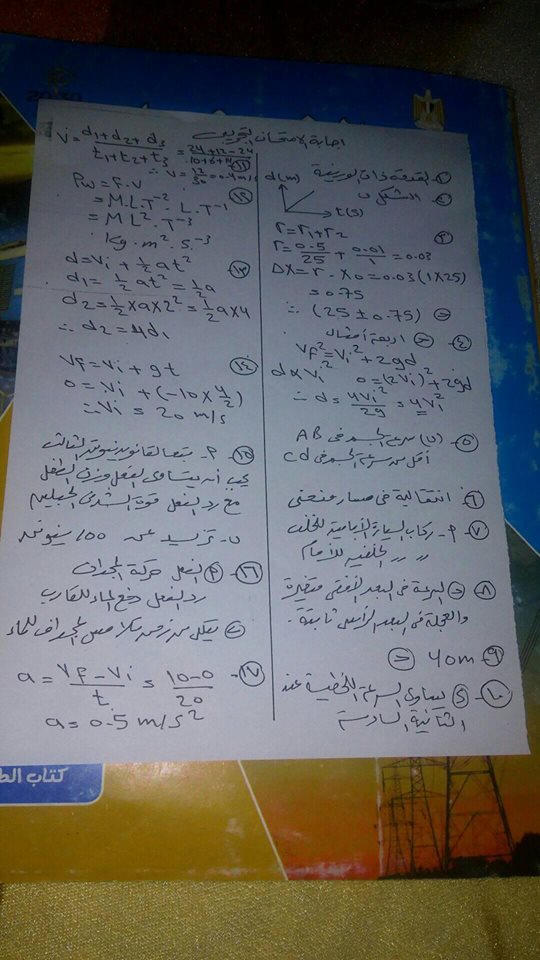 اجابة الامتحان التجريبى
١- القدمة ذات الورنية
٢- الشكل ب
d(m)
t(s)
٣- r = r1 + r2
r = 0.5/25 + 0.01/1 = 0.03
ΔX = r · X0 = 0.03 (1×25)
= 0.75
∴ (25 ± 0.75)
٤- ج اربعة أمثال
Vf² = Vi² + 2gd
d α Vi² 0 = (2Vi)² + 2gd
∴ d = 4Vi²/2g = 4Vi²
٥- (ب) سرعة الجسم فى AB
أقل من سرعة الجسم فى Cd
٦- انتقالية فى مسار منحنى
٧- م- ركاب السيارة الأمامية للخلف
الخلفية للأمام
٨- ج السرعة فى البعد الأفقى متغيرة
والعجلة فى البعد الرأسى ثابتة.
٩- 40m ج
١٠- د يساوى السرعة اللحظية عند
الثانية السادسة
١١- V = (d1 + d2 + d3)/(t1 + t2 + t3) = (24+12-24)/(10+6+14)
∴ V = 12/30 = 0.4 m/s
١٢- Pw = F.V
= M.L.T⁻² . L.T⁻¹
= ML².T⁻³
Kg.m².s⁻³
١٣- d = Vi + ½ at²
d1 = ½ at² = ½ a
d2 = ½ × a × 2² = ½ a × 4
∴ d2 = 4d1
١٤- Vf = Vi + gt
0 = Vi + (-10 × 4/2)
∴ Vi = 20 m/s
١٥- م- تبعا لقانون نيوتن الثالث
يجب أن يتساوى لفعل وزن الطفل
مع رد الفعل قوة الشد فى الحبلين
ب- تزيد عن 100 نيوتن
١٦- م الفعل حركة المجداف
رد الفعل دفع الماء للقارب
المجداف للماء
١٧- a = (Vf - Vi)/t = (10-0)/20
a = 0.5 m/s²
كتاب الط